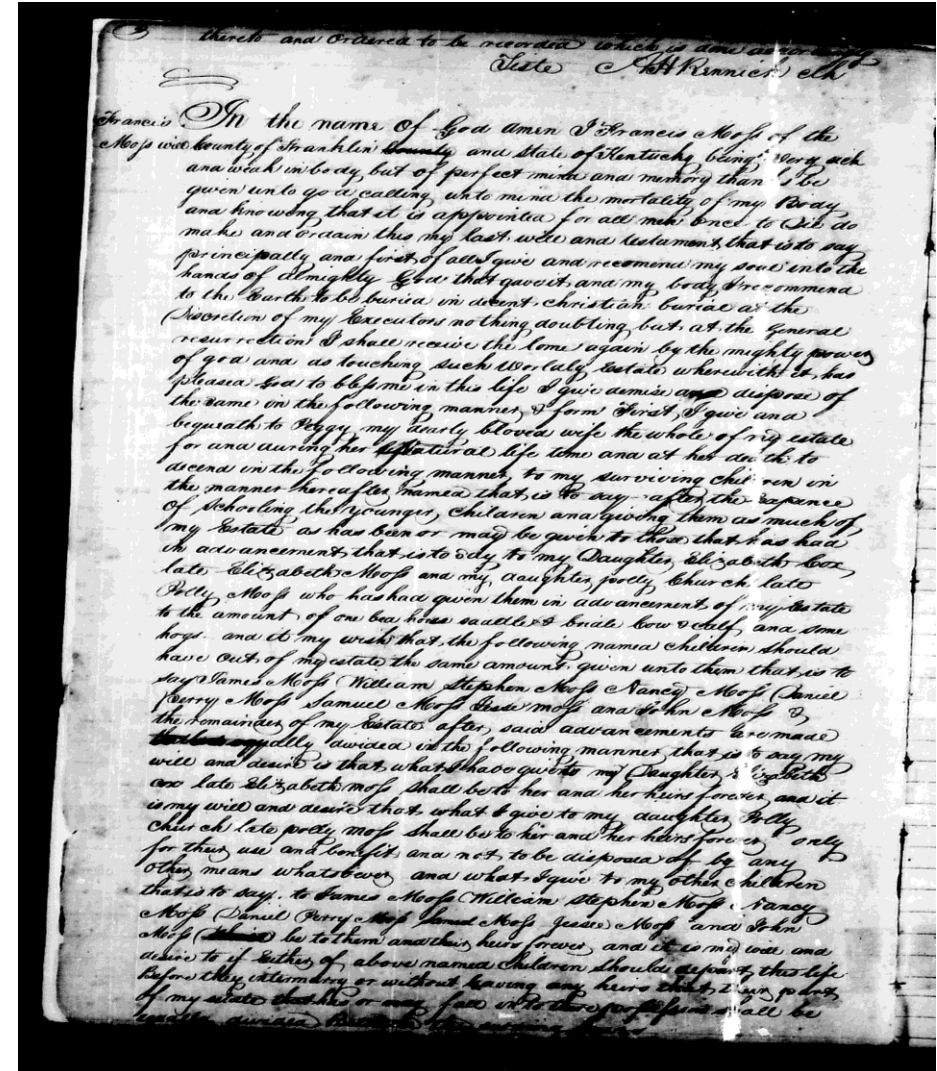 thereto and Ordered to be recorded which is done accordingly
Teste A H Rennick clk
Francis
Moss will
In the name of God Amen I Francis Moss of the
County of Franklin County and State of Kentucky being Very sick
and weak in body, but of perfect mind and memory thanks be
given unto god calling unto mind the mortality of my Body
and knowing that it is appointed for all men once to Die do
make and ordain this my last will and testament, that is to say
principally and first of all I give and recomend my soul into the
hands of almighty God that gave it, and my body I recommend
to the Earth to be buried in decent christian burial at the
Discretion of my Executors nothing doubting but at the General
resurrection I shall receive the Come again by the mighty power
of god and as touching such Worldly Estate wherewith it has
pleased God to bless me in this life I give demise and dispose of
the same in the following manner & form First, I give and
bequeath to Peggy my dearly bloved wife the whole of my estate
for and during her natural life time and at her death to
decend in the following manner to my surviving children in
the manner hereafter named that is to say after the Expence
of Schooling the younger Children and giving them as much of
my Estate as has been or may be given to those that has had
in advancement that is to say to my Daughter Elizabeth Cox
late Elizabeth Moss and my daughter polly Church late
Polly Moss who has had given them in advancement of my Estate
to the amount of one bea horse saddle & bridle Cow & Calf and some
hogs and it my wish that the following named children should
have out of my estate the same amount given unto them that is to
say James Moss William Stephen Moss Nancy Moss Daniel
Perry Moss Samuel Moss Jesse moss and John Moss &
the remainder of my Estate after said advancements are made
equally divided in the following manner that is to say my
will and desire is that what I have give to my Daughter Elizabeth
cox late Elizabeth moss shall be to her and her heirs forever and it
is my will and desire that what I give to my daughter Polly
church late polly moss shall be to her and her heirs forever only
for their use and benefit and not to be disposed of by any
other means whatsoever and what I give to my other children
that is to say to James Moss William Stephen Moss Nancy
Moss Daniel Perry Moss Moss Jesse Moss and John
Moss be to them and their heirs forever and it is my will and
desire to if Either of above named children should depart this life
Before they intermarry or without leaving any heirs that their part
of my estate that has or may fall into there possession shall be
equally divided